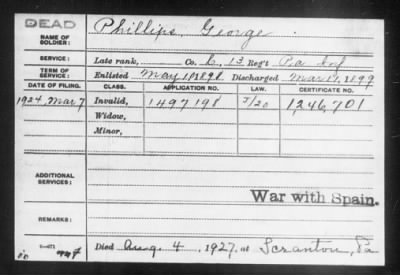 DEAD
NAME OF SOLDIER: Phillips, George
SERVICE: Late rank, Co. C, 13 Reg't Pa Inf
TERM OF SERVICE: Enlisted May 11, 1898. Discharged Mar 11, 1899
DATE OF FILING. CLASS. APPLICATION NO. LAW. CERTIFICATE NO.
1924, Mar 7 Invalid, 1497198 J/20 1,246,701
Widow,
Minor,
ADDITIONAL SERVICES:
War with Spain.
REMARKS:
Died Aug. 4, 1927, at Scranton, Pa